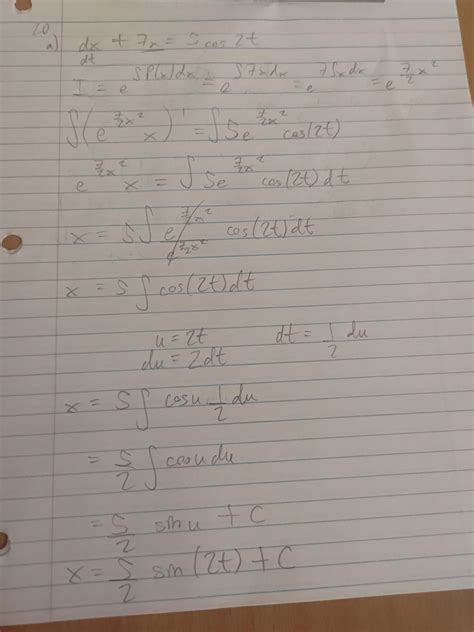 20
a) dx/dt + 7x = 5 cos 2t
I = e^∫P(x)dx = e^∫7xdx = e^7∫xdx = e^7/2x²
∫(e^7/2x² x)' = ∫5e^7/2x² cos(2t)
e^7/2x² x = ∫5e^7/2x² cos(2t)dt
x = 5∫ e^7/2x² / e^7/2x² cos(2t)dt
x = 5∫cos(2t)dt
u = 2t dt = 1/2 du
du = 2dt
x = 5∫cosu 1/2 du
= 5/2 ∫cosudu
= 5/2 sinu + C
x = 5/2 sin(2t) + C